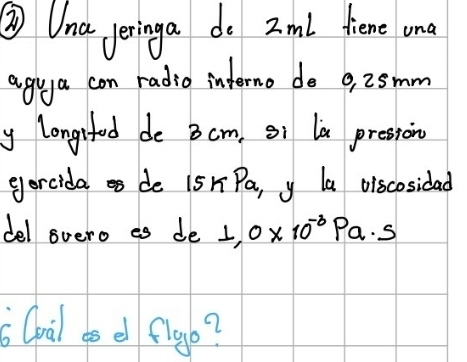 ② Una jeringa de 2mL tiene una
aguja con radio interno de 0,25mm
y longitud de 3cm, si la presión
ejercida es de 15KPa, y la viscosidad
del suero es de 1,0x10⁻³ Pa·s
¿Cuál es el flujo?